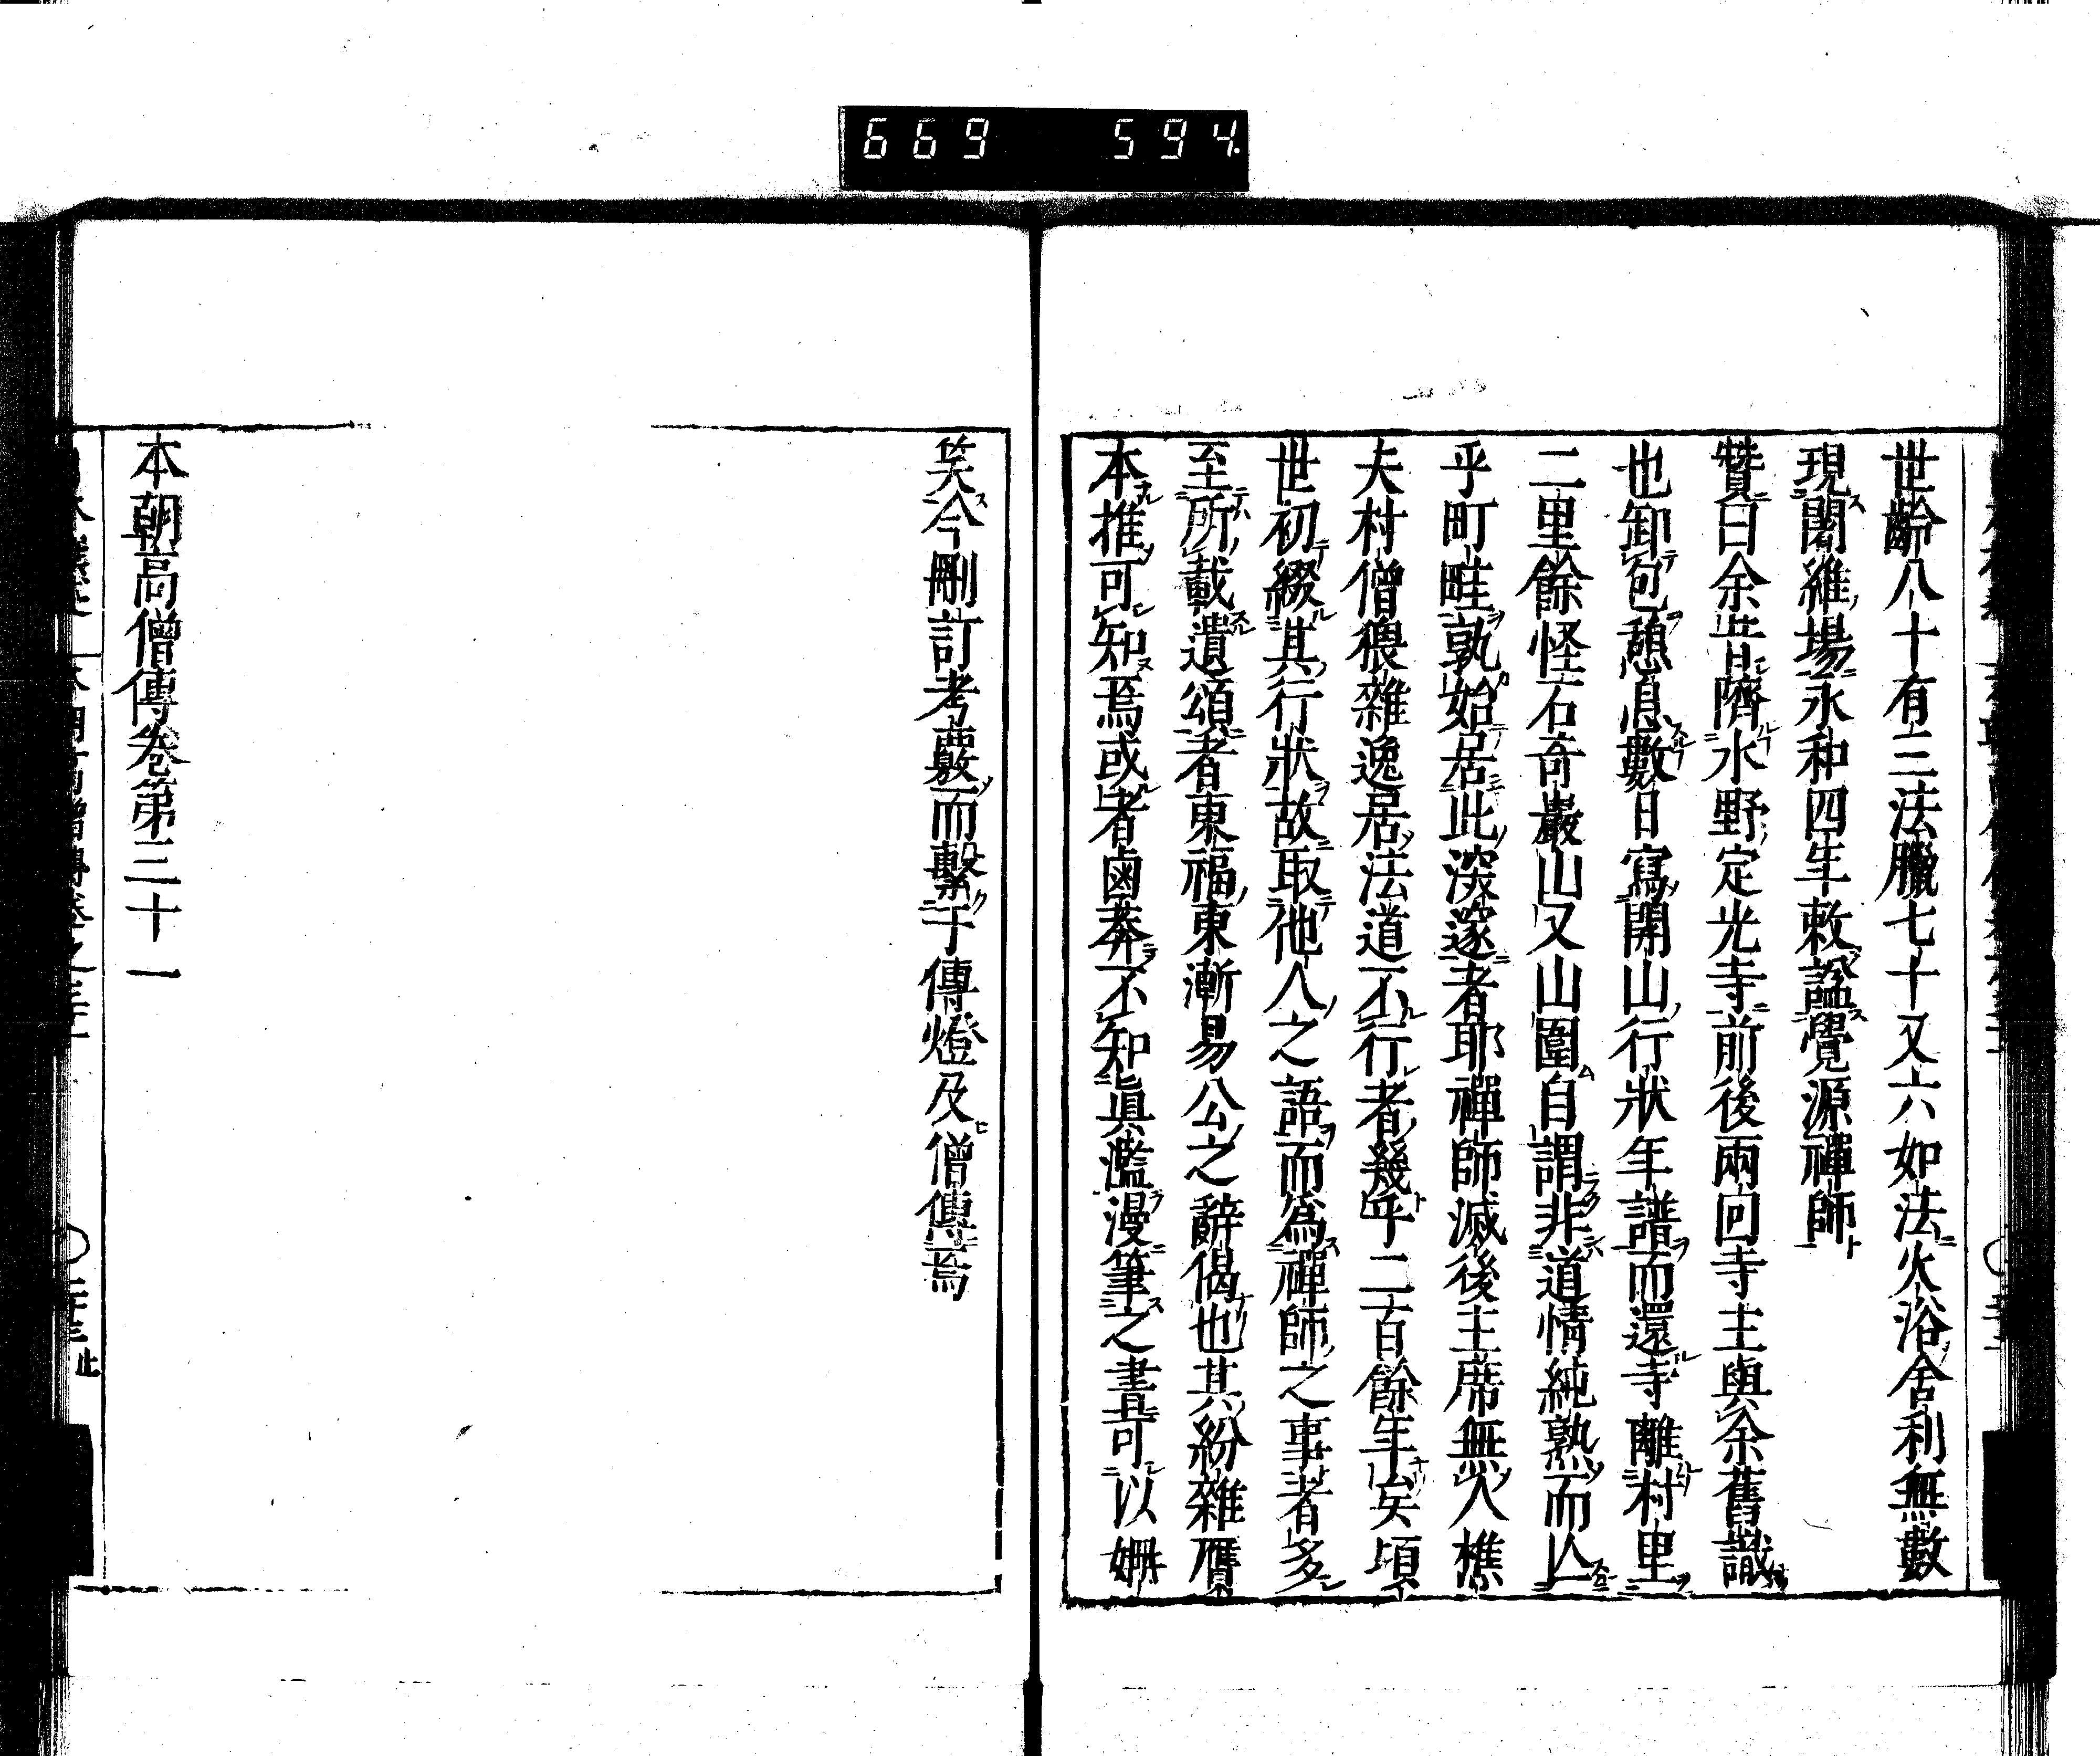 669 594
世齡八十有三法臘七十又六如法火浴舍利無數
現闍維場永和四年敕諡覺源禪師
贊曰余昔躋水野定光寺前後兩回寺主與余舊識
也卸包憩息數日寫開山行狀年譜而還寺離村里
二里餘怪石奇巖山又山圍自謂非道情純熟而亾
乎町畦孰始居此深邃者耶禪師滅後主席無人樵
夫村僧猥雜逸居法道不行者幾乎二百餘年矣頃
世初綴其行狀故取他人之語而爲禪師之事者多
至所載遺頌者東福東漸易公之辭偈也其紛雜贋
本推可知焉或者鹵莽不知眞濫漫筆之書可以姍
笑今刪訂考覈而繫于傳燈及僧傳焉
本朝高僧傳卷第三十一